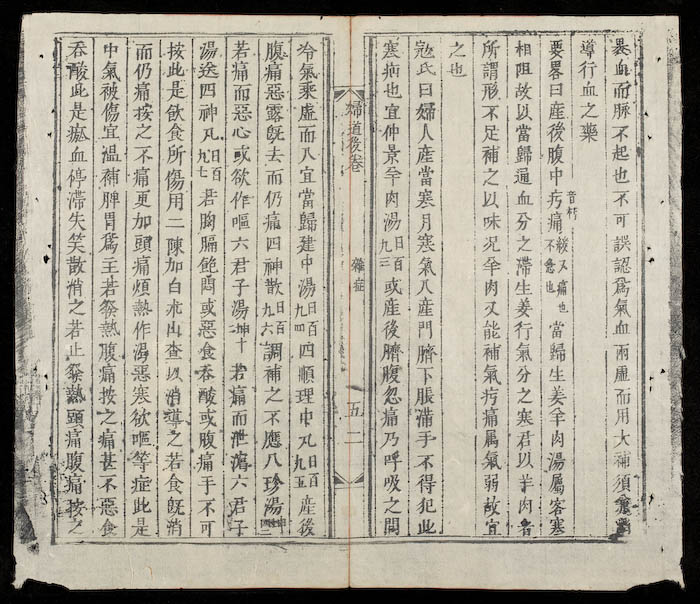 裹血而脉不起也不可誤認爲氣血兩虛而用大補須
導行血之藥
要畧曰産後腹中㽱痛音朽緩又痛也不急也當歸生姜羊肉湯屬客寒
相阻故以當歸通血分之滯生姜行氣分之寒君以羊肉者
所謂形不足補之以味况羊肉又能補氣㽱痛属氣弱故宜
之也
寇氏曰婦人産當寒月寒氣入産門臍下脹滿手不得犯此
寒疝也宜仲景羊肉湯日百九三或産後臍腹忽痛乃呼吸之間
婦道後卷 雜症 五二
冷氣乘虛而入宜當歸建中湯日百九四四順理中凡日百九五産後
腹痛惡露旣去而仍痛四神散日百九六調補之不應八珍湯
若痛而惡心或欲作嘔六君子湯坤十若痛而泄瀉六君子
湯送四神凡日百九七若胸膈飽悶或惡食吞酸或腹痛手不可
按此是飲食所傷用二陳加白朮山查以消導之若食旣消
而仍痛按之不痛更加頭痛煩熱作渴惡寒欲嘔等症此是
中氣被傷宜温補脾胃爲主若發熱腹痛按之痛甚不惡食
吞酸此是瘀血停滯失笑散消之若止發熱頭痛腹痛按之